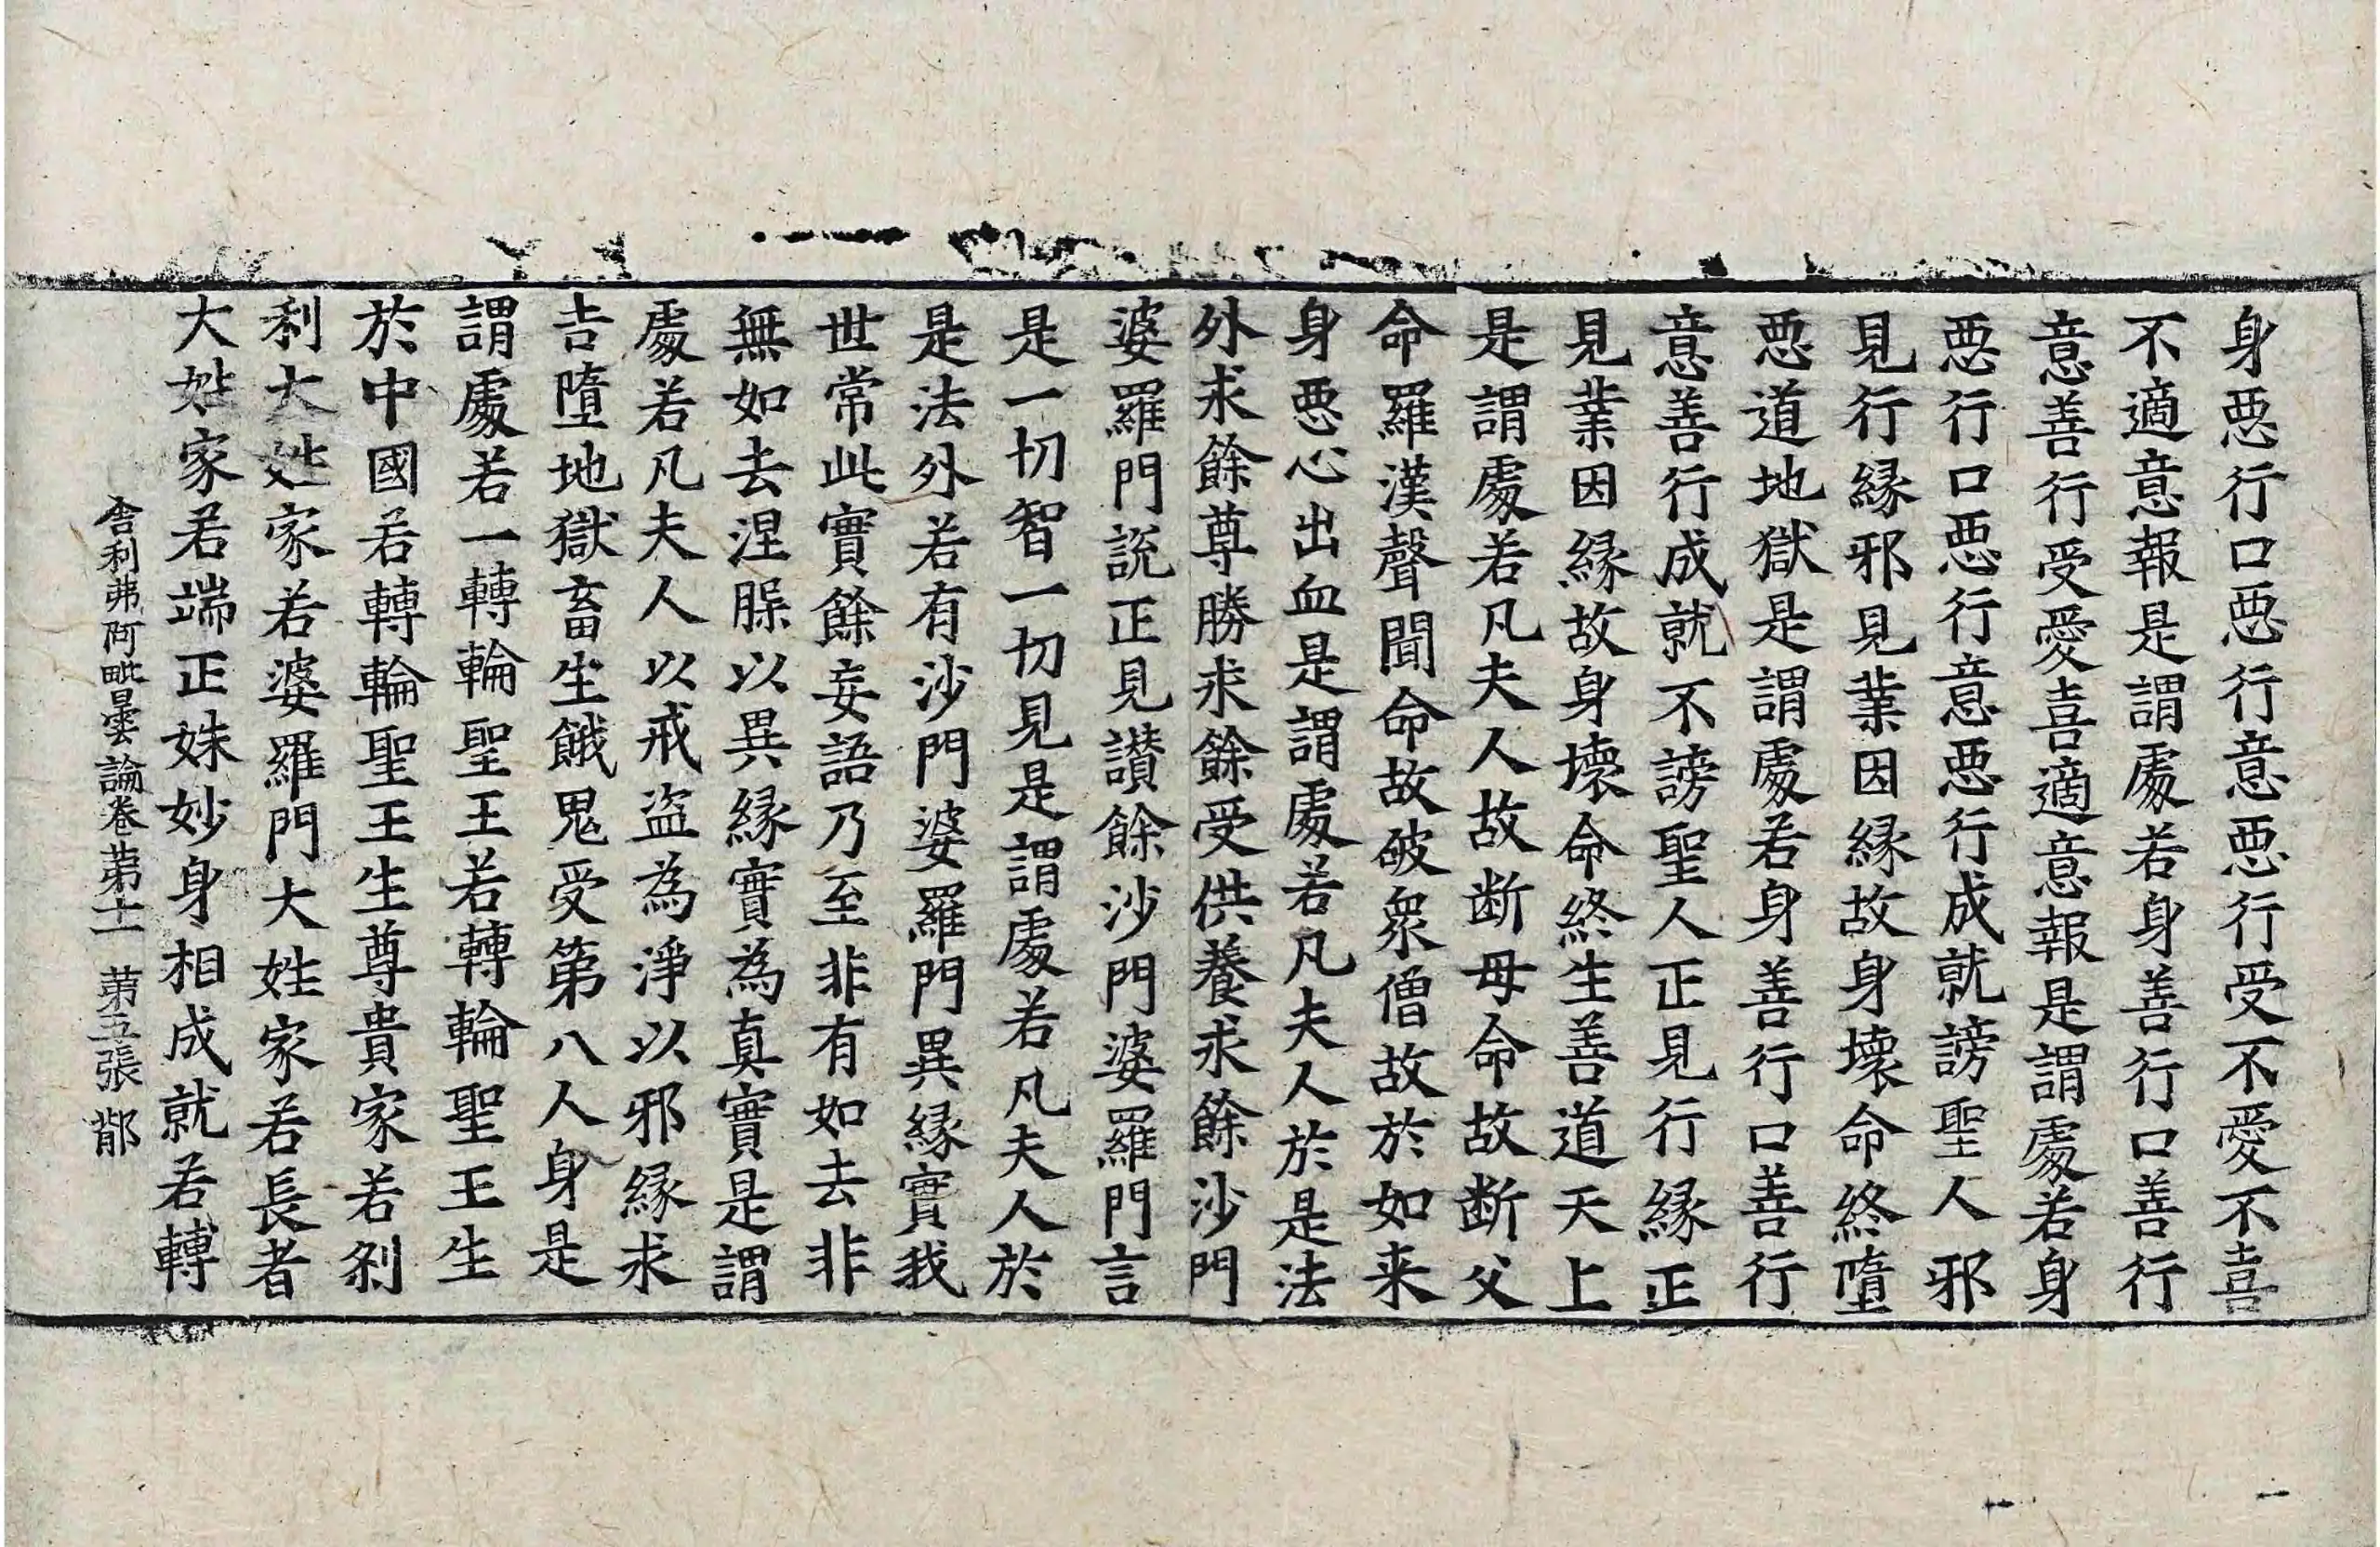 身惡行口惡行意惡行受不愛不喜
不適意報是謂處若身善行口善行
意善行受愛喜適意報是謂處若身
惡行口惡行意惡行成就謗聖人邪
見行緣邪見業因緣故身壞命終墮
惡道地獄是謂處若身善行口善行
意善行成就不謗聖人正見行緣正
見業因緣故身壞命終生善道天上
是謂處若凡夫人故断母命故断父
命羅漢聲聞命故破衆僧故於如来
身惡心出血是謂處若凡夫人於是法
外求餘尊勝求餘受供養求餘沙門
婆羅門說正見讃餘沙門婆羅門言
是一切智一切見是謂處若凡夫人於
是法外若有沙門婆羅門異緣實我
世常此實餘妄語乃至非有如去非
無如去涅槃以異緣實為真實是謂
處若凡夫人以戒盜為淨以邪緣求
吉墮地獄畜生餓鬼受第八人身是
謂處若一轉輪聖王若轉輪聖王生
於中國若轉輪聖王生尊貴家若剎
利大姓家若婆羅門大姓家若長者
大姓家若端正姝妙身相成就若轉
舍利弗阿毗曇論卷苐十一 苐五張 鄁